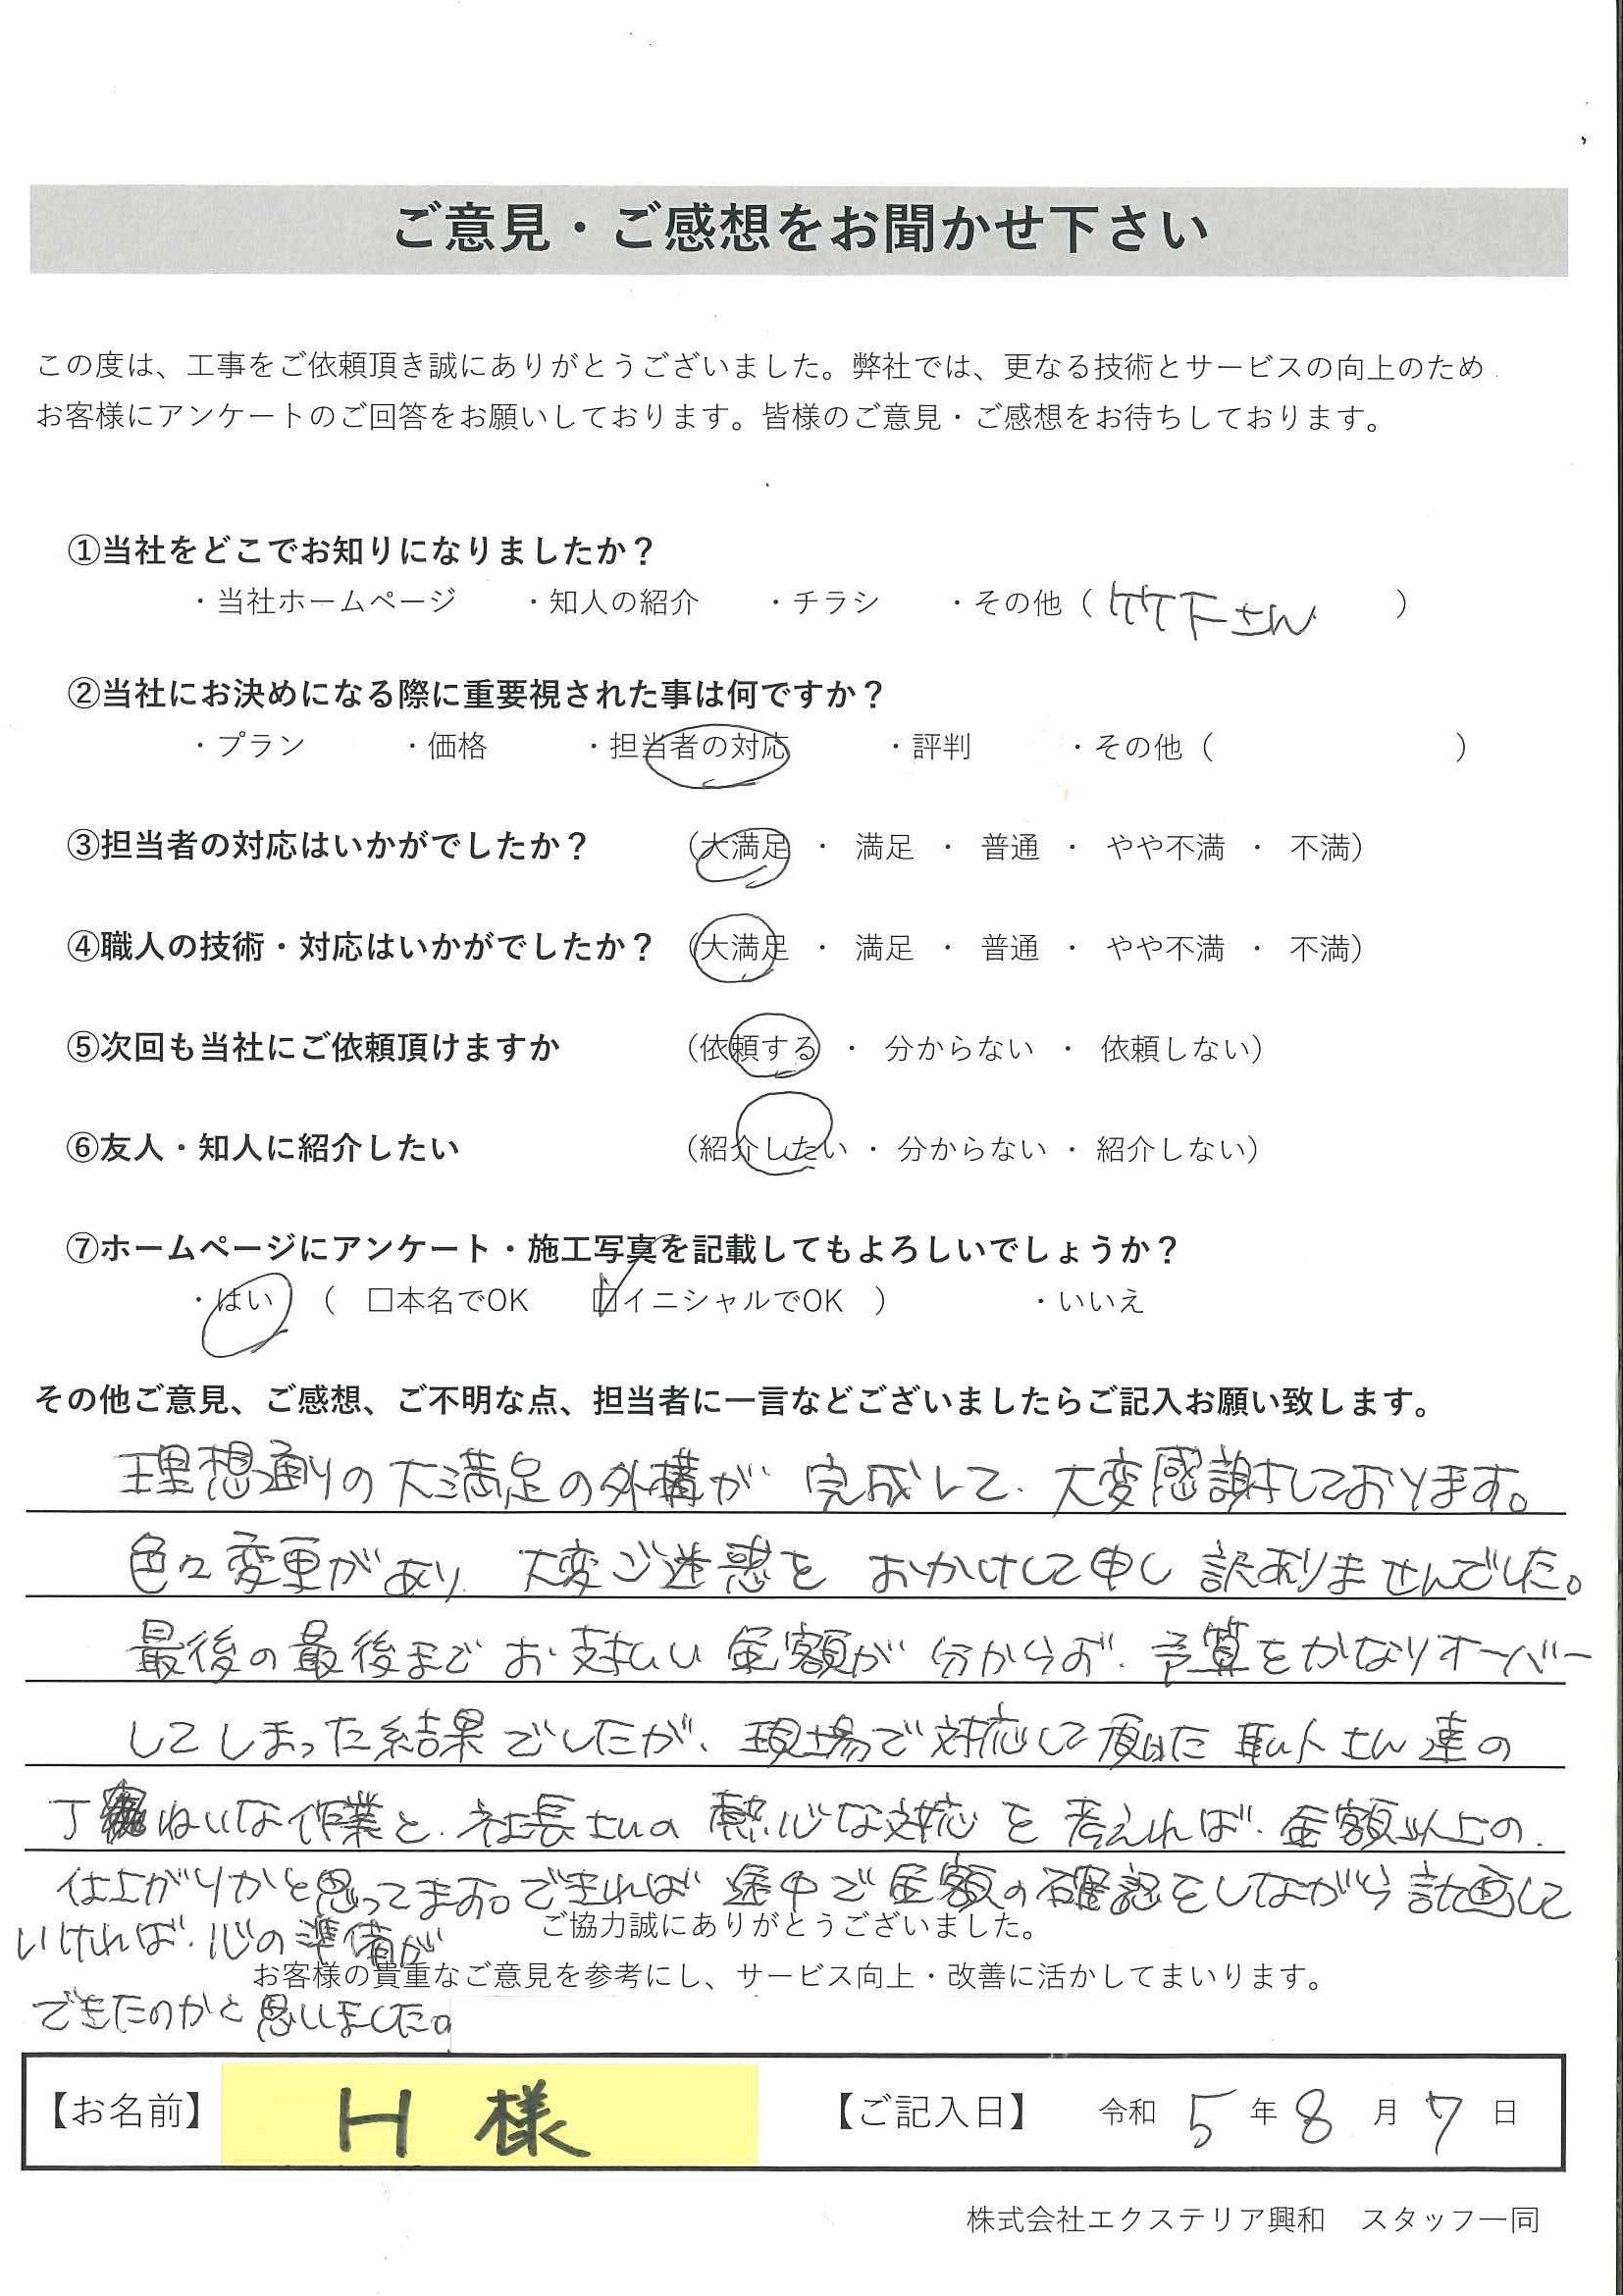 ご意見・ご感想をお聞かせ下さい
この度は、工事をご依頼頂き誠にありがとうございました。弊社では、更なる技術とサービスの向上のため
お客様にアンケートのご回答をお願いしております。皆様のご意見・ご感想をお待ちしております。
①当社をどこでお知りになりましたか？
・当社ホームページ ・知人の紹介 ・チラシ ・その他（ 竹下さん ）
②当社にお決めになる際に重要視された事は何ですか？
・プラン ・価格 ・担当者の対応 ・評判 ・その他（ ）
③担当者の対応はいかがでしたか？ （大満足 ・ 満足 ・ 普通 ・ やや不満 ・ 不満）
④職人の技術・対応はいかがでしたか？ （大満足 ・ 満足 ・ 普通 ・ やや不満 ・ 不満）
⑤次回も当社にご依頼頂けますか （依頼する ・ 分からない ・ 依頼しない）
⑥友人・知人に紹介したい （紹介したい ・ 分からない ・ 紹介しない）
⑦ホームページにアンケート・施工写真を記載してもよろしいでしょうか？
・はい （ □本名でOK ☑イニシャルでOK ） ・いいえ
その他ご意見、ご感想、ご不明な点、担当者に一言などございましたらご記入お願い致します。
理想通りの大満足の外構が完成して、大変感謝しております。
色々変更があり、大変ご迷惑をおかけして申し訳ありませんでした。
最後の最後までお支払い金額が分からず、予算をかなりオーバー
してしまった結果でしたが、現場で対応して頂いた職人さん達の
丁ねいな作業と、社長さんの熱心な対応を考えれば、金額以上の
仕上がりかと思ってます。できれば途中で金額の確認をしながら計画して
いければ、心の準備が
ご協力誠にありがとうございました。
お客様の貴重なご意見を参考にし、サービス向上・改善に活かしてまいります。
できたのかと思いました。
【お名前】 H 様 【ご記入日】 令和 5 年 8 月 7 日
株式会社エクステリア興和 スタッフ一同